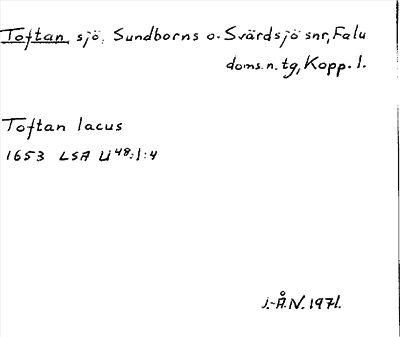 Toftan, sjö, Sundborns o. Svärdsjö snr, Falu
doms. n. tg, Kopp. l.
Toftan lacus
1653 LSA U 48:1:4
J.-Å.N. 1971.